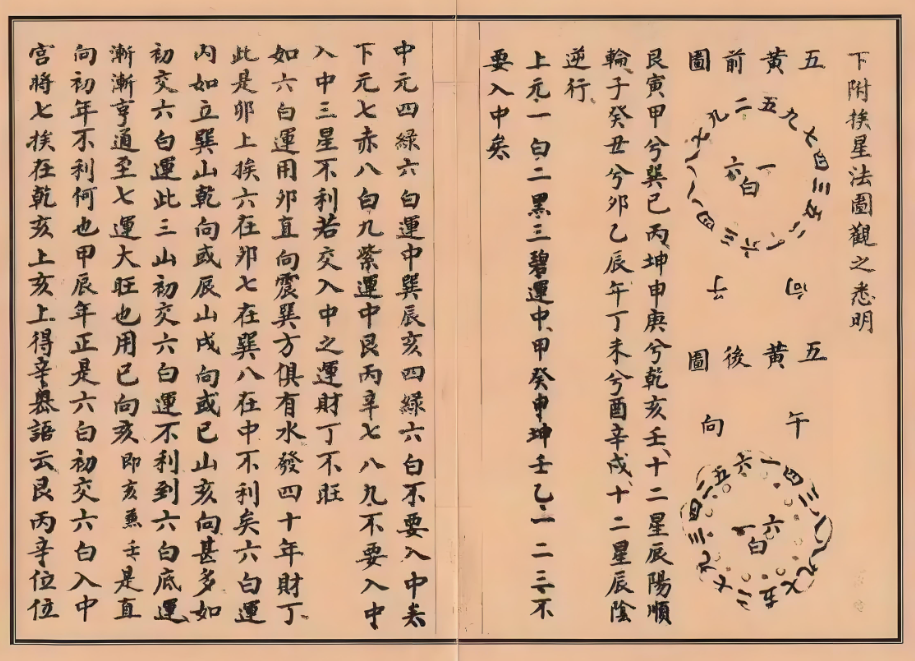 下附挨星法圖觀之悉明
五黃前圖
二五九七四三
六一白
子向
五黃後圖
午向
六一白
艮寅甲兮巽巳丙坤申庚兮乾亥壬十二星辰陽順
輪子癸丑兮卯乙辰午丁未兮酉辛戌十二星辰陰
逆行
上元一白二黑三碧運中甲癸申坤壬乙一二三不
要入中矣
中元四綠六白運中巽辰亥四綠六白不要入中矣
下元七赤八白九紫運中艮丙辛七八九不要入中
入中三星不利若交入中之運財丁不旺
如六白運用卯直向震巽方俱有水發四十年財丁
此是卯上挨六在卯七在巽八在中不利矣六白運
內如立巽山乾向或辰山戌向或巳山亥向甚多如
初交六白運此三山初交六白運不利到六白底運
漸漸亨通至七運大旺也用巳向亥即亥兼壬是直
向初年不利何也甲辰年正是六白初交六白入中
宮將七挨在乾亥上亥上得辛語云艮丙辛位位